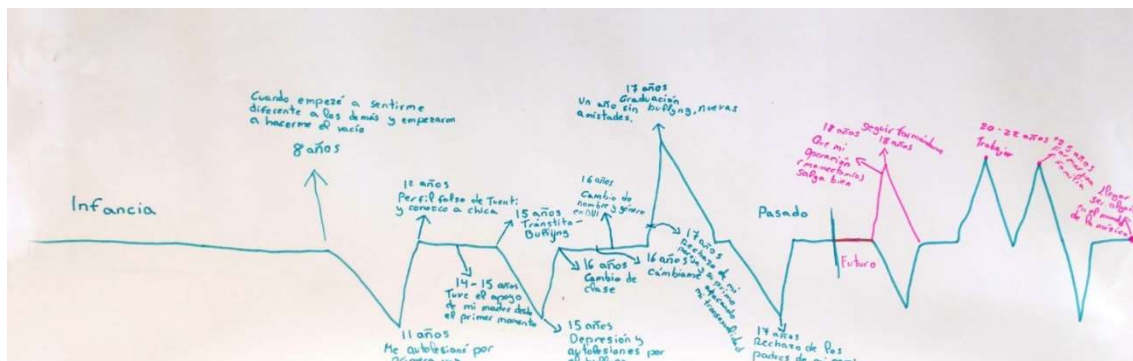 Infancia
Cuando empezé a sentirme
diferente a los demás y empezaron
a hacerme el vacío
8 años
11 años
Me autolesioné por
12 años
Perfil falso de Tuenti
y conozco a chica
14-15 años
Tuve el apoyo
de mi madre desde
el primer momento
15 años
Tránsito-
Bullyng
15 años
Depresión y
autolesiones por
16 años
Cambio de
clase
16 años
Cambio de
nombre y género
en DNI
16 años
cámbiame
17 años
Graduación
Un año sin bullyng, nuevas
amistades.
17 años
Rechazo de mi
primo
mi transexualidad
17 años
Rechazo de los
padres de mi
Pasado
Futuro
18 años
Que mi
operación
(mamectomía)
salga bien
Seguir formándome
18 años
20-22 años
Trabajar
25 años
Formar una
familia
Llegar
ser alguien
en el mundo
de la música